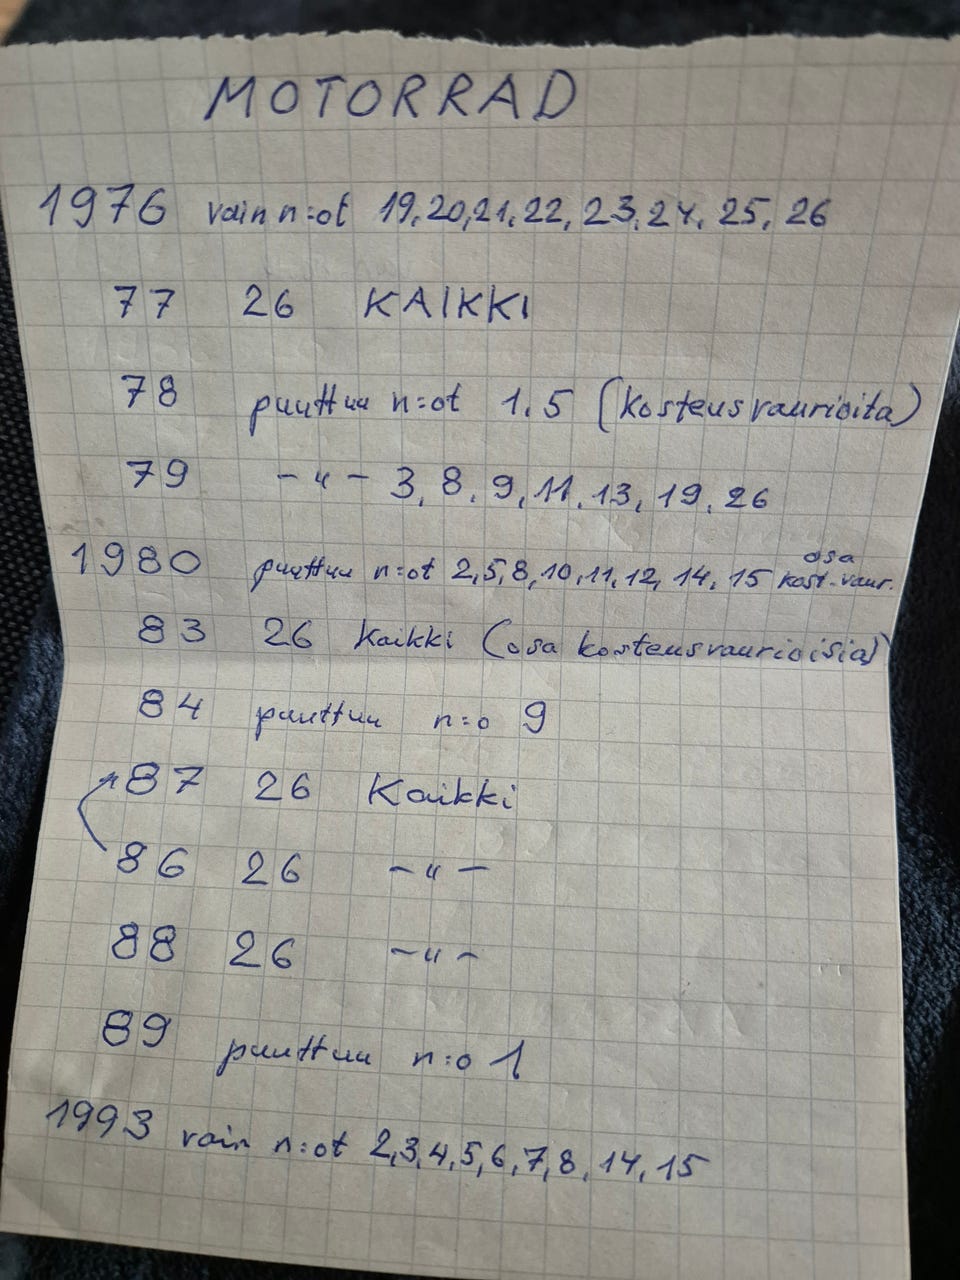 MOTORRAD
1976 vain n:ot 19,20,21,22,23,24,25,26
77 26 KAIKKI
78 puuttuu n:ot 1,5 (kosteusvaurioita)
79 -"- 3,8,9,11,13,19,26
1980 puuttuu n:ot 2,5,8,10,11,12,14,15 osa kost.vaur.
83 26 Kaikki (osa kosteusvaurioisia)
84 puuttuu n:o 9
87 26 Kaikki
86 26 -"-
88 26 -"-
89 puuttuu n:o 1
1993 vain n:ot 2,3,4,5,6,7,8,14,15